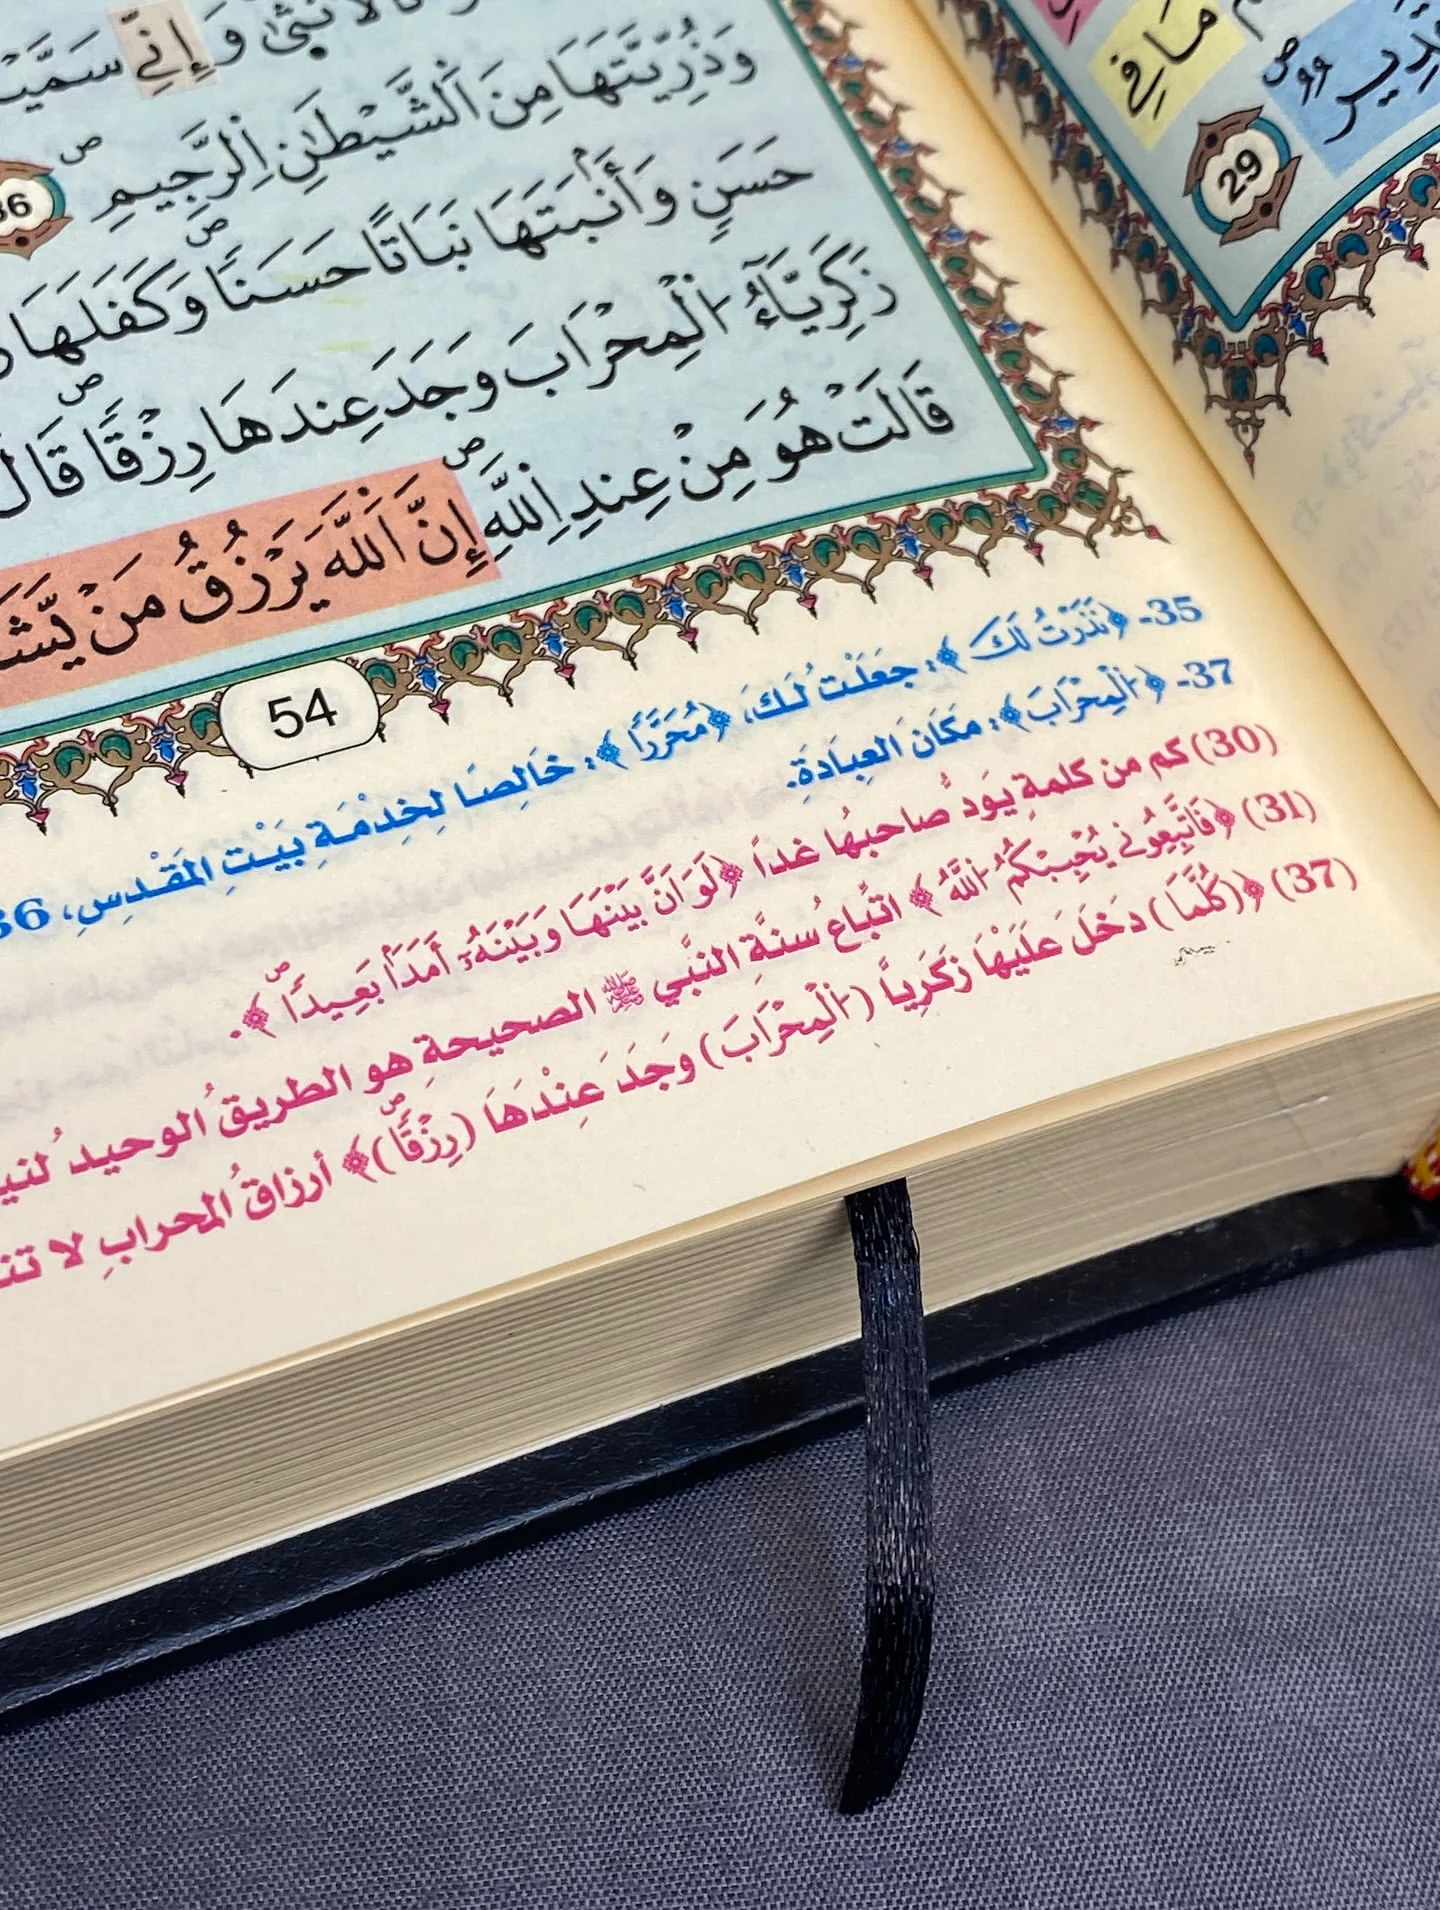 مَا فِي
29
وَإِنِّي
وَذُرِّيَّتَهَا مِنَ اَلشَّيْطَٰنِ اِلرَّجِيمِ ۖ 36
حَسَنٖ وَأَنۢبَتَهَا نَبَاتًا حَسَنٗا ۖ وَكَفَلَهَا
زَكَرِيَّآءُ اُ۬لْمِحْرَابَ وَجَدَ عِندَهَا رِزْقٗا ۖ قَالَ
قَالَتْ هُوَ مِنْ عِندِ اِ۬للَّهِ ۖ إِنَّ اَ۬للَّهَ يَرْزُقُ مَنْ يَّشَ
54
35- ﴿نَذَرْتُ لَكَ﴾: جعَلْتُ لَكَ، ﴿مُحَرَّراً﴾: خَالِصًا لخِدْمَةِ بَيْتِ المَقْدِسِ، 36
37- ﴿اَ۬لْمِحْرَابَ﴾: مكَانَ العِبَادَةِ.
(30) كم من كلمةٍ يَودُّ صاحبُها غداً ﴿لَوَ اَنَّ بَيْنَهَا وَبَيْنَهُۥٓ أَمَدَۢا بَعِيدٗا ۖ﴾.
(31) ﴿فَاتَّبِعُونِے يُحْبِبْكُمُ اُ۬للَّهُ﴾ اتِّباعُ سنةِ النبي ﷺ الصحيحةِ هو الطريقُ الوحيدُ
(37) ﴿(كُلَّمَا) دَخَلَ عَلَيْهَا زَكَرِيَّا (اُ۬لْمِحْرَابَ) وَجَدَ عِنْدَهَا (رِزْقٗا ۖ)﴾ أرزاقُ المحرابِ لا